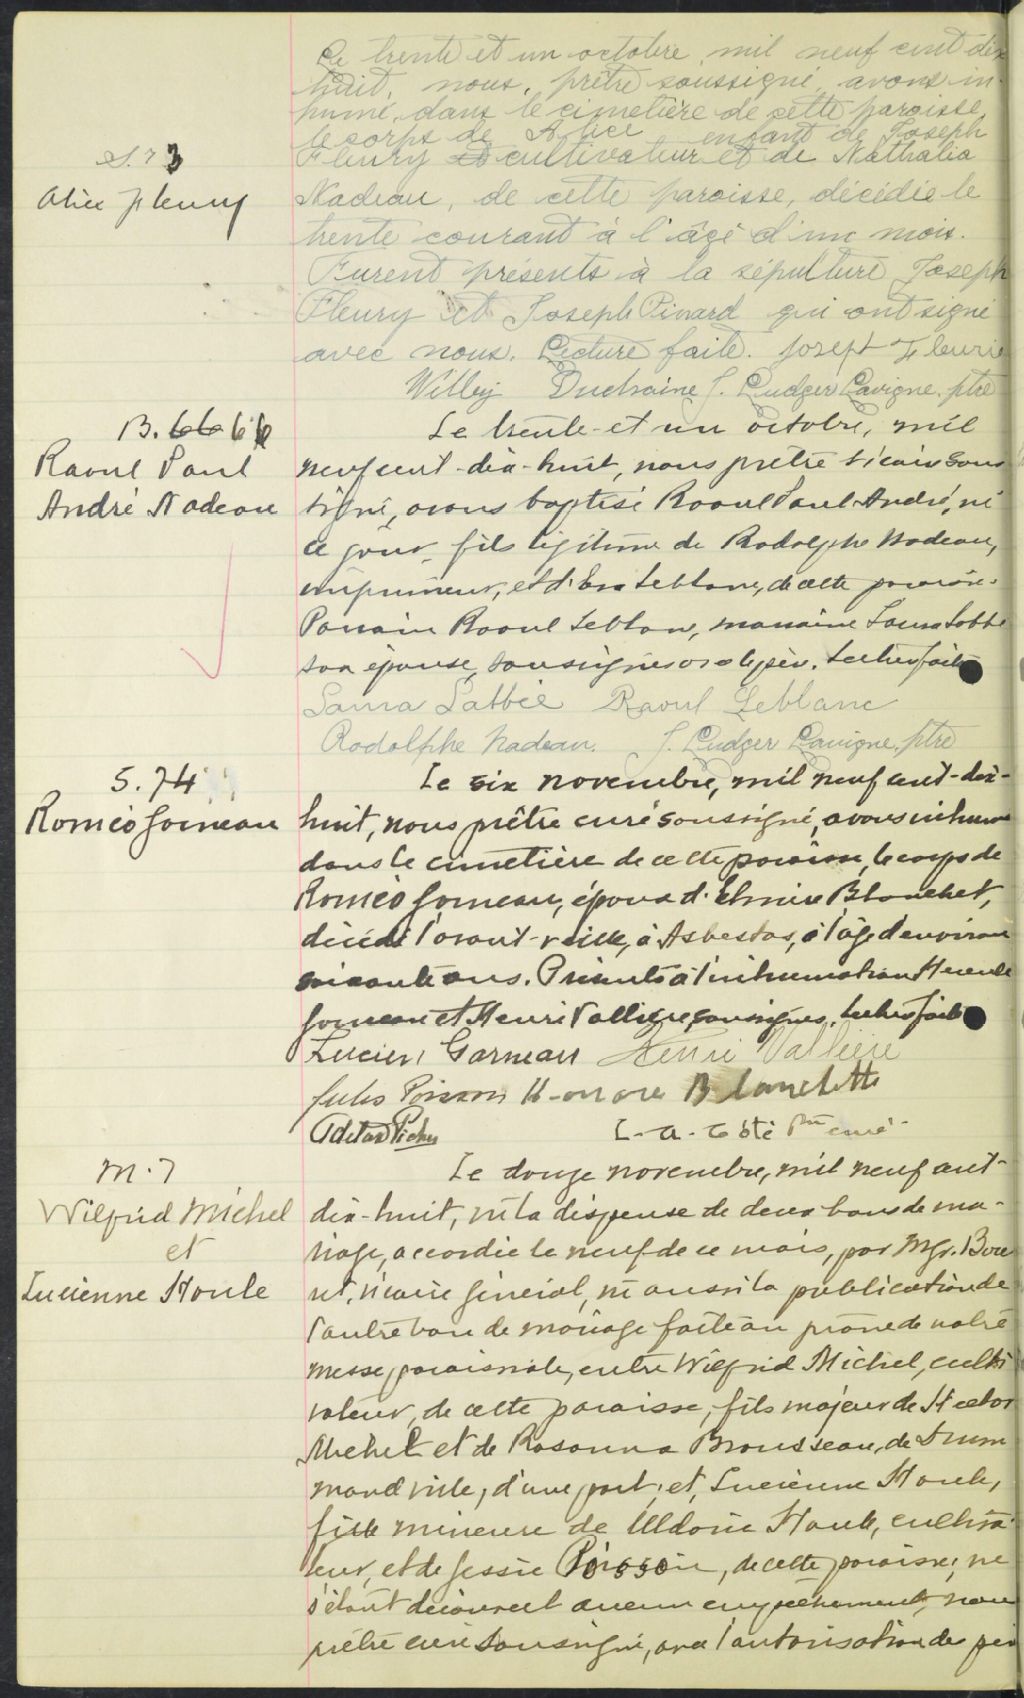 Le trente et un octobre mil neuf cent dix
huit, nous, prêtre soussigné, avons in-
humé, dans le cimetière de cette paroisse
le corps de Alice enfant de Joseph
S. 73
Fleury cultivateur et de Nathalia
Alice Fleury
Nadeau, de cette paroisse, décédée le
trente courant à l'âge d'un mois.
Furent présents à la sépulture Joseph
Fleury et Joseph Pinard qui ont signé
avec nous. Lecture faite. Josept Fleurie
Willey Duchaine J. Ludger Lavigne, ptre
B. 66 66
Le trente-et un octobre, mil
Raoul Paul
neuf cent-dix-huit, nous prêtre vicaire sous
André Nadeau
signé, avons baptisé Raoul Paul-André, né
ce jour, fils légitime de Rodolphe Nadeau,
imprimeur, et d'Eva Leblanc, de cette paroisse.
Parrain Raoul Leblanc, marraine Laura Labbé
son épouse, soussignés avec le père. Lecture faite
Laura Labbée Raoul Leblanc
Rodolphe Nadeau. J. Ludger Lavigne, ptre
S. 74
Le six novembre, mil neuf cent-dix-
Roméo Garneau
huit, nous prêtre curé soussigné, avons inhumé
dans le cimetière de cette paroisse, le corps de
Roméo Garneau, époux d'Elmire Blanchet,
décédé l'avant-veille, à Asbestos, à l'âge d'environ
soixante ans. Présents à l'inhumation
Garneau et Henri Vallière, soussignés. Lecture faite
Lucien Garneau Henri Vallière
Jules Poisson Honoré Blanchette
L-a-Côté Ptre curé-
M. 7
Le douze novembre, mil neuf cent-
Wilfrid Michel
dix-huit, vu la dispense de deux bans de ma-
et
riage, accordée le neuf de ce mois, par Mgr.
Lucienne Houle
vicaire général, vu aussi la publication de
l'autre ban de mariage faite au prône de notre
messe paroissiale, entre Wilfrid Michel, culti
vateur, de cette paroisse, fils majeur de Hector
Michel et de Rosanna Brousseau, de Drum
mondville, d'une part; et, Lucienne Houle,
fille mineure de Uldoric Houle, cultiva-
teur, et de Jessie Poisson, de cette paroisse; ne
s'étant découvert aucun empêchement, nous
prêtre curé soussigné, avec l'autorisation des